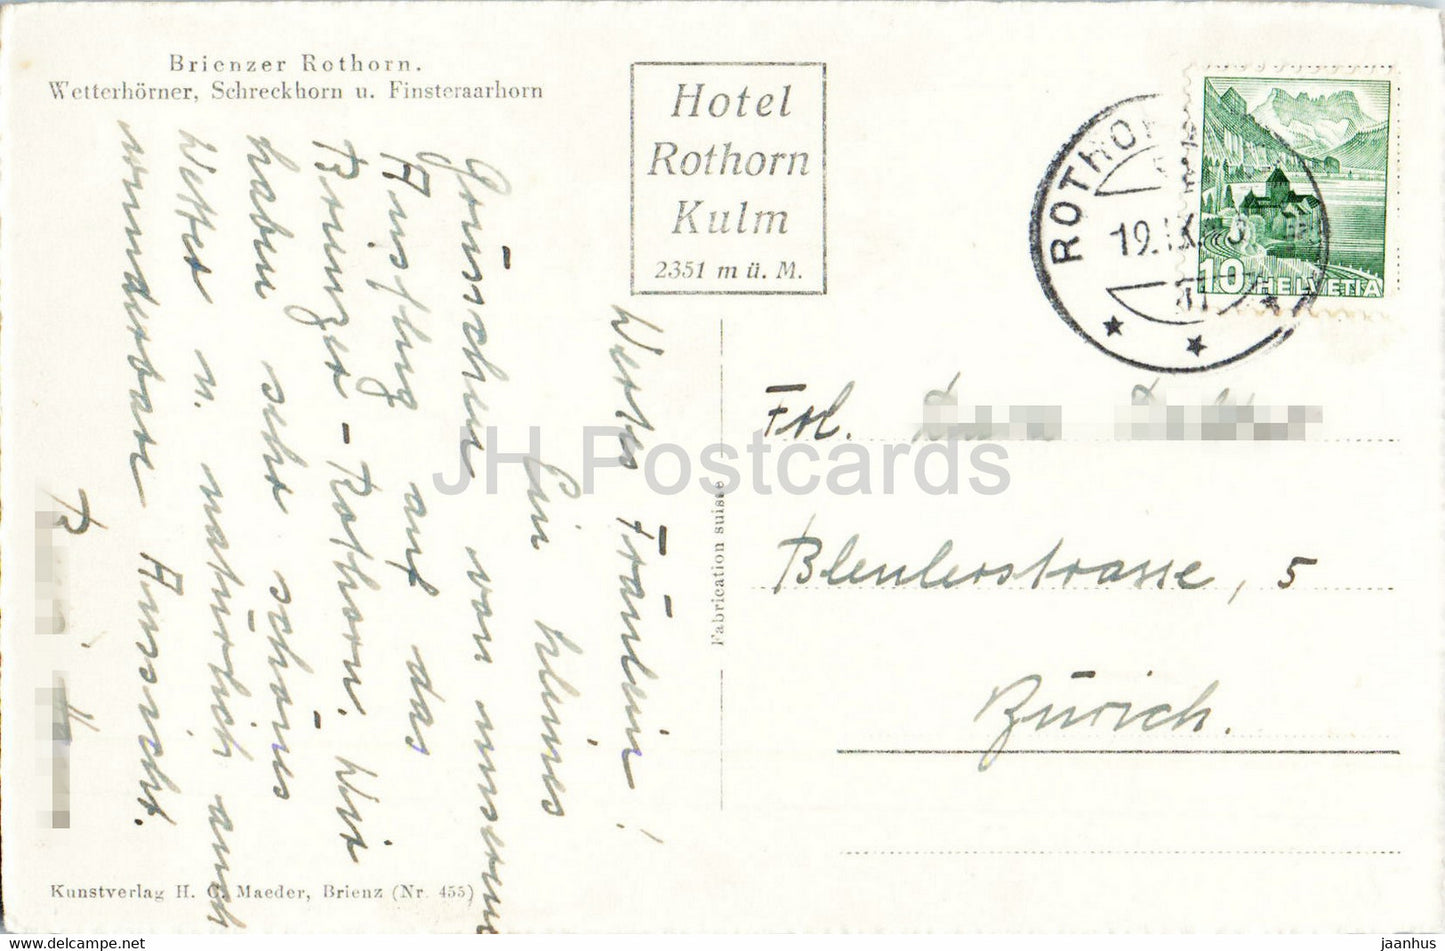 Brienzer Rothorn.
Wetterhörner, Schreckhorn u. Finsteraarhorn
Hotel
Rothorn
Kulm
2351 m ü. M.
ROTHO
19.IX.
10 HELVETIA
Wertes Fräulein!
Ein kleines
Grüsschen von unserem
Ausflug auf das
Brienzer-Rothorn. Wir
haben sehr schönes
Wetter u. natürlich auch
wunderbare Aussicht.
Frl.
Bleulerstrasse, 5
Zürich.
Fabrication suisse
Kunstverlag H. C. Maeder, Brienz (Nr. 455)
JH Postcards
www.hippostcard.com
jaanhus